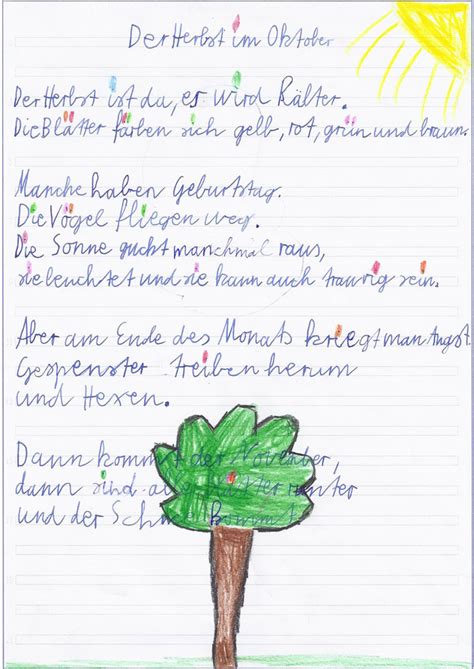 Der Herbst im Oktober
Der Herbst ist da, es wird kälter.
Die Blätter färben sich gelb, rot, grün und braun.
Manche haben Geburtstag.
Die Vögel fliegen weg.
Die Sonne guckt manchmal raus,
sie leuchtet und sie kann auch traurig sein.
Aber am Ende des Monats kriegt man Angst.
Gespenster treiben herum
und Hexen.
Dann kommt der November,
dann sind alle Blätter runter
und der Schnee kommt.